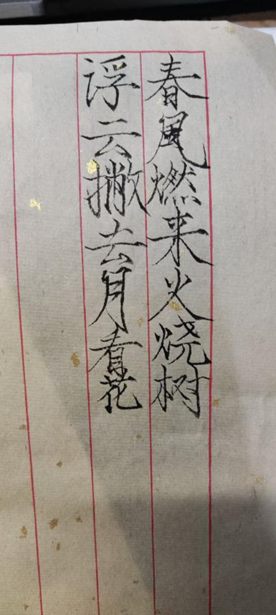 春風燃来火烧树
浮云撇去月看花